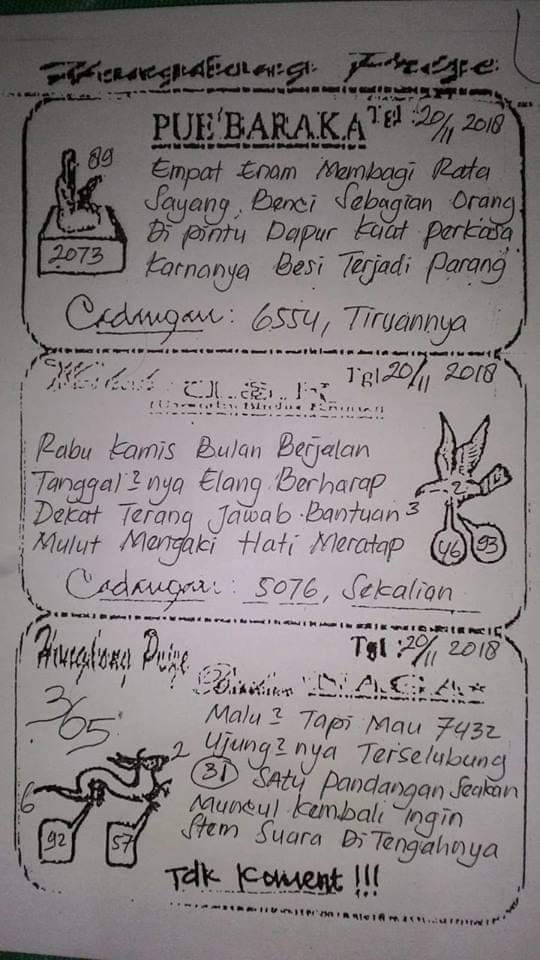 PUE'BARAKA
Tgl : 20/11 2018
89
2073
Empat Enam Membagi Rata
Sayang, Benci Sebagian Orang
Di pintu Dapur Kuat Perkasa
Karnanya Besi Terjadi Parang
Cadangan : 6554, Tiruannya
Tgl 20/11 2018
Rabu Kamis Bulan Berjalan
Tanggal 2 nya Elang Berharap
Dekat Terang Jawab Bantuan 3
Mulut Mengaki Hati Meratap
2
46 93
Cadangan : 5076, Sekalian
Tgl : 20/11 2018
NAGA
3/65
Malu 2 Tapi Mau 7432
Ujung 2 nya Terselubung
31 SATU pandangan Seakan
Muncul Kembali Ingin
Stem Suara Di Tengahnya
2
6
92 57
Tdk Koment !!!